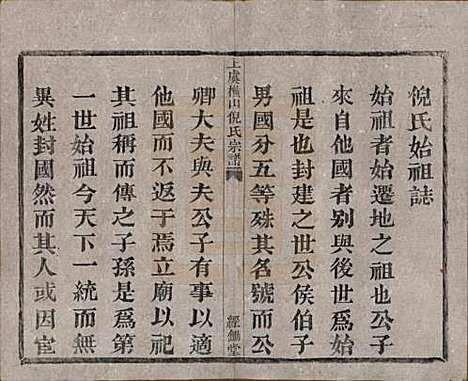 倪氏始祖誌
始祖者始遷地之祖也其
來自他國者别與後世爲始
祖是也封建之世公侯伯子
男國分五等殊其名號而公
上虞橫山倪氏宗譜
經鋤堂
卿大夫與夫公子有事以適
他國而不返于焉立廟以祀
其祖稱而傳之子孫是爲第
一世始祖今天下一統而無
異姓封國然而其人或因宦